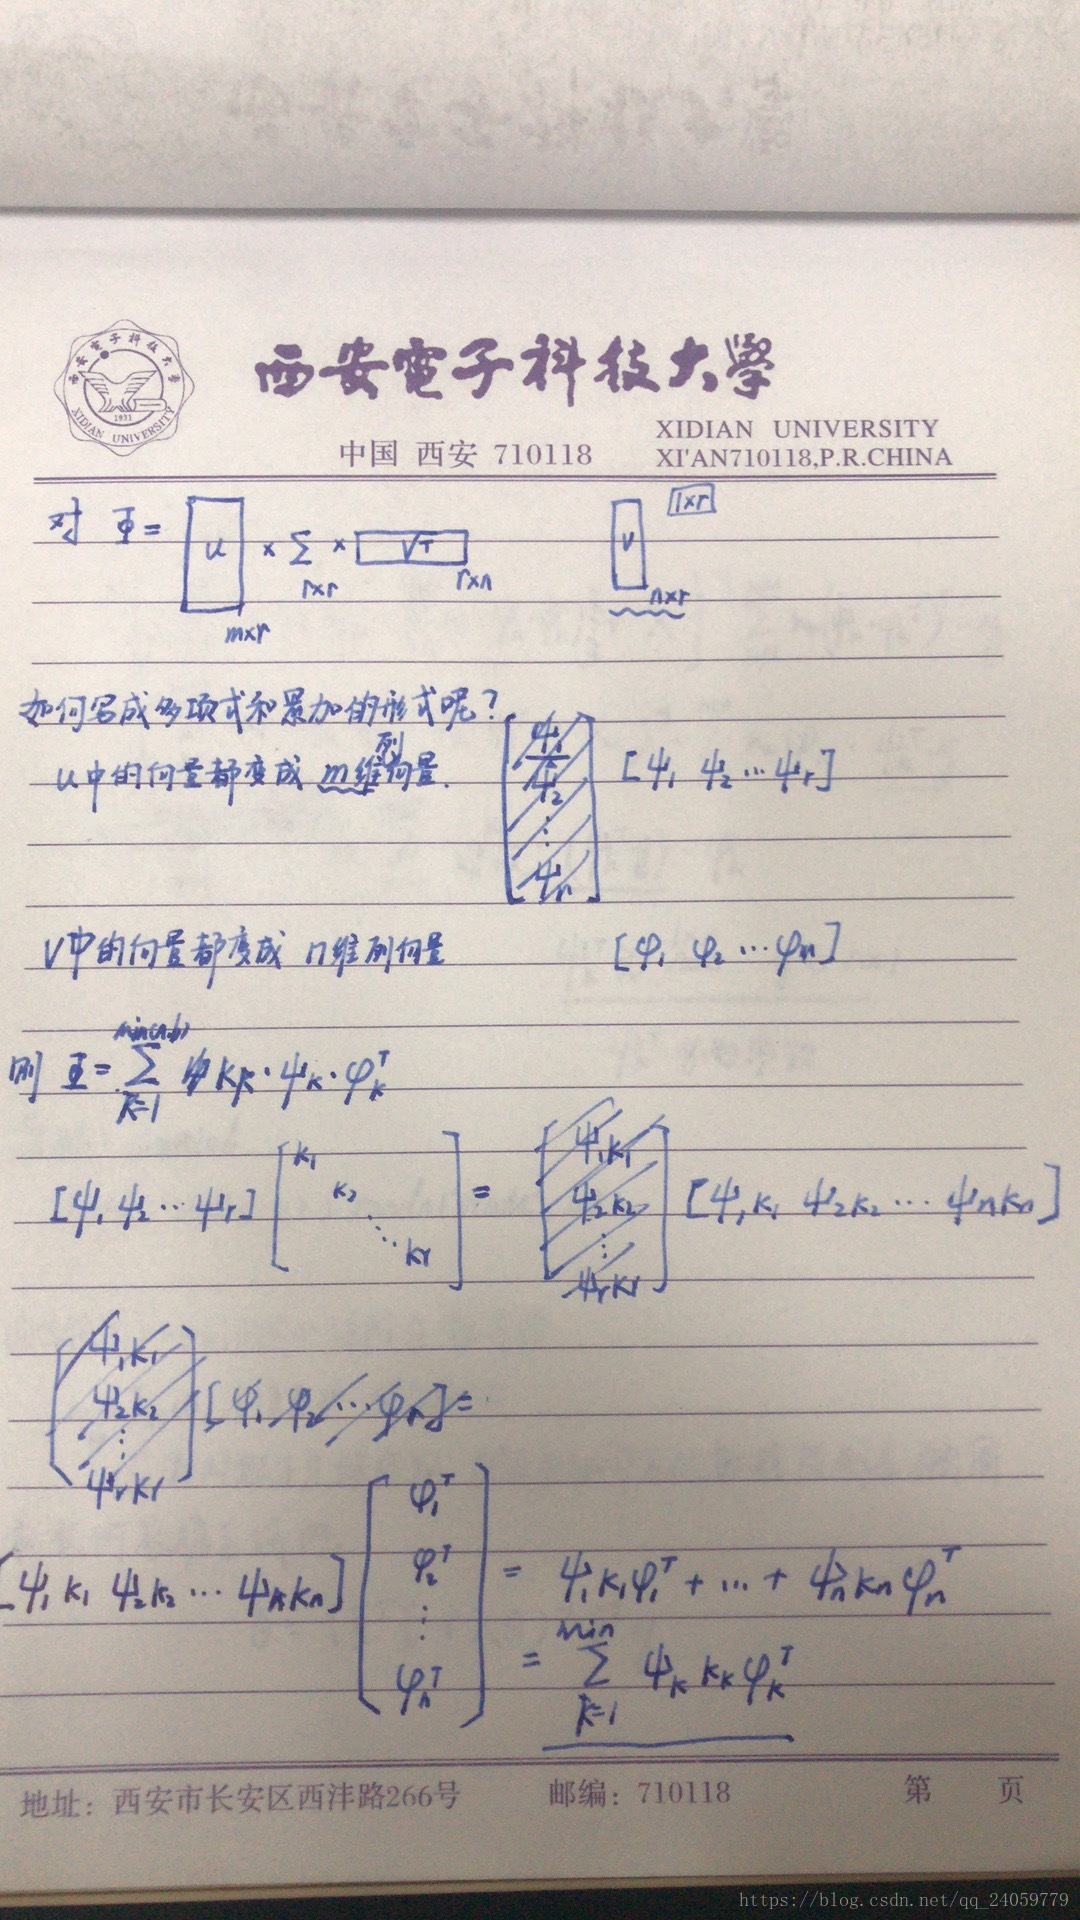 西安電子科技大學
XIDIAN UNIVERSITY
1931
西安電子科技大學
中国 西安 710118
XIDIAN UNIVERSITY
XI'AN710118,P.R.CHINA
对 Φ = U × Σ × V^T
m×r r×r r×n
V n×r
1×r
如何写成多项式和累加的形式呢?
U中的向量都变成 m维列向量.
[ψ₁ ψ₂ ⋮ ψr] [ψ₁ ψ₂ ⋯ ψr]
V中的向量都变成 n维列向量 [φ₁ φ₂ ⋯ φn]
则 Φ = Σ_{k=1}^{min(a,b)} k_k · ψ_k · φ_k^T
[ψ₁ ψ₂ ⋯ ψr] [k₁ k₂ ⋱ kr] = [ψ₁k₁ ψ₂k₂ ⋮ ψrkr] [ψ₁k₁ ψ₂k₂ ⋯ ψnkn]
[ψ₁k₁ ψ₂k₂ ⋮ ψrkr] [φ₁ φ₂ ⋯ φn] =
[ψ₁k₁ ψ₂k₂ ⋯ ψnkn] [φ₁^T φ₂^T ⋮ φn^T] = ψ₁k₁φ₁^T + ⋯ + ψnknφn^T
= Σ_{k=1}^{min} ψ_k k_k φ_k^T
地址：西安市长安区西沣路266号 邮编：710118 第 页
https://blog.csdn.net/qq_24059779